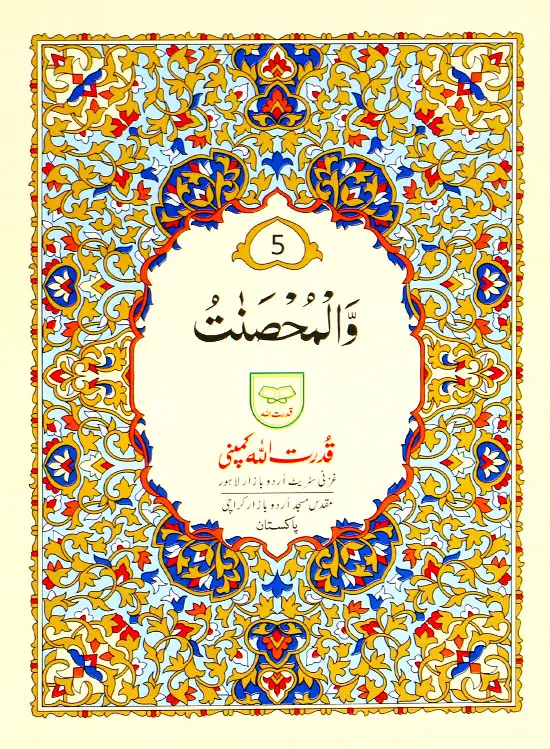 5
وَّالْمُحْصَنٰتُ
قدرت اللہ
قُدرت اللہ کمپنی
غزنی سٹریٹ اُردو بازار لاہور
مقدس مسجد اُردو بازار کراچی
پاکستان